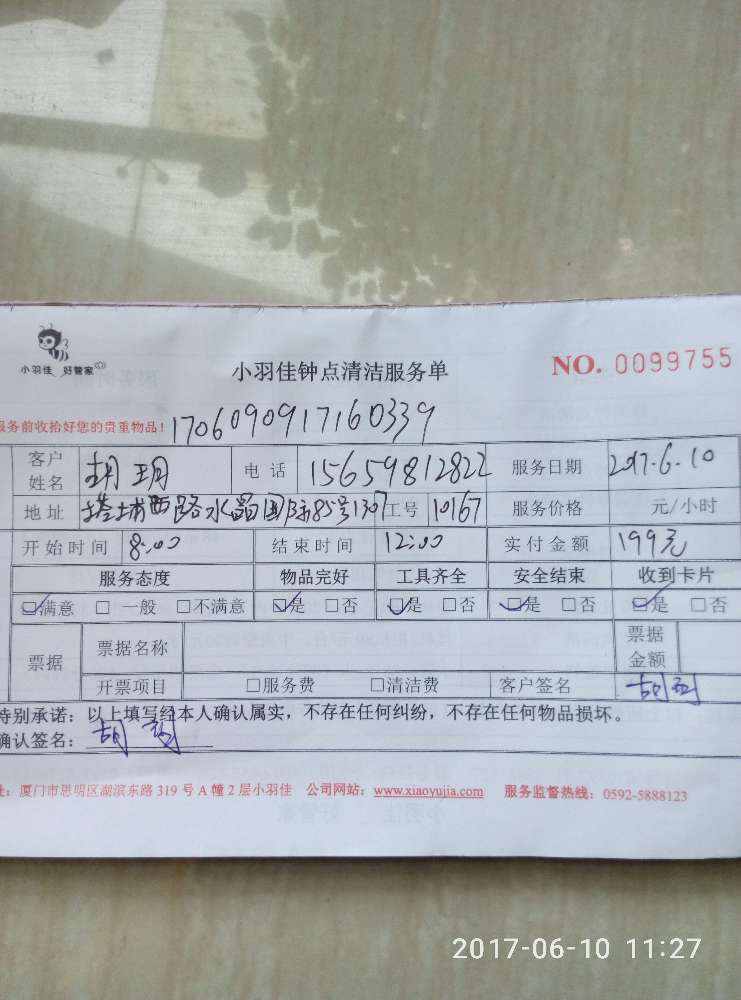 小羽佳 好管家
小羽佳钟点清洁服务单
NO. 0099755
服务前收拾好您的贵重物品！
1706090917160339
客户姓名 胡玥 电话 15659812822 服务日期 2017.6.10
地址 塔埔西路水晶国际85号1307 工号 10167 服务价格 元/小时
开始时间 8:00 结束时间 12:00 实付金额 199元
服务态度 物品完好 工具齐全 安全结束 收到卡片
☑满意 □一般 □不满意 ☑是 □否 ☑是 □否 ☑是 □否 ☑是 □否
票据 票据名称 票据金额
开票项目 □服务费 □清洁费 客户签名 胡玥
特别承诺：以上填写经本人确认属实，不存在任何纠纷，不存在任何物品损坏。
确认签名：胡玥
址：厦门市思明区湖滨东路319号A幢2层小羽佳 公司网站：www.xiaoyujia.com 服务监督热线：0592-5888123
2017-06-10 11:27